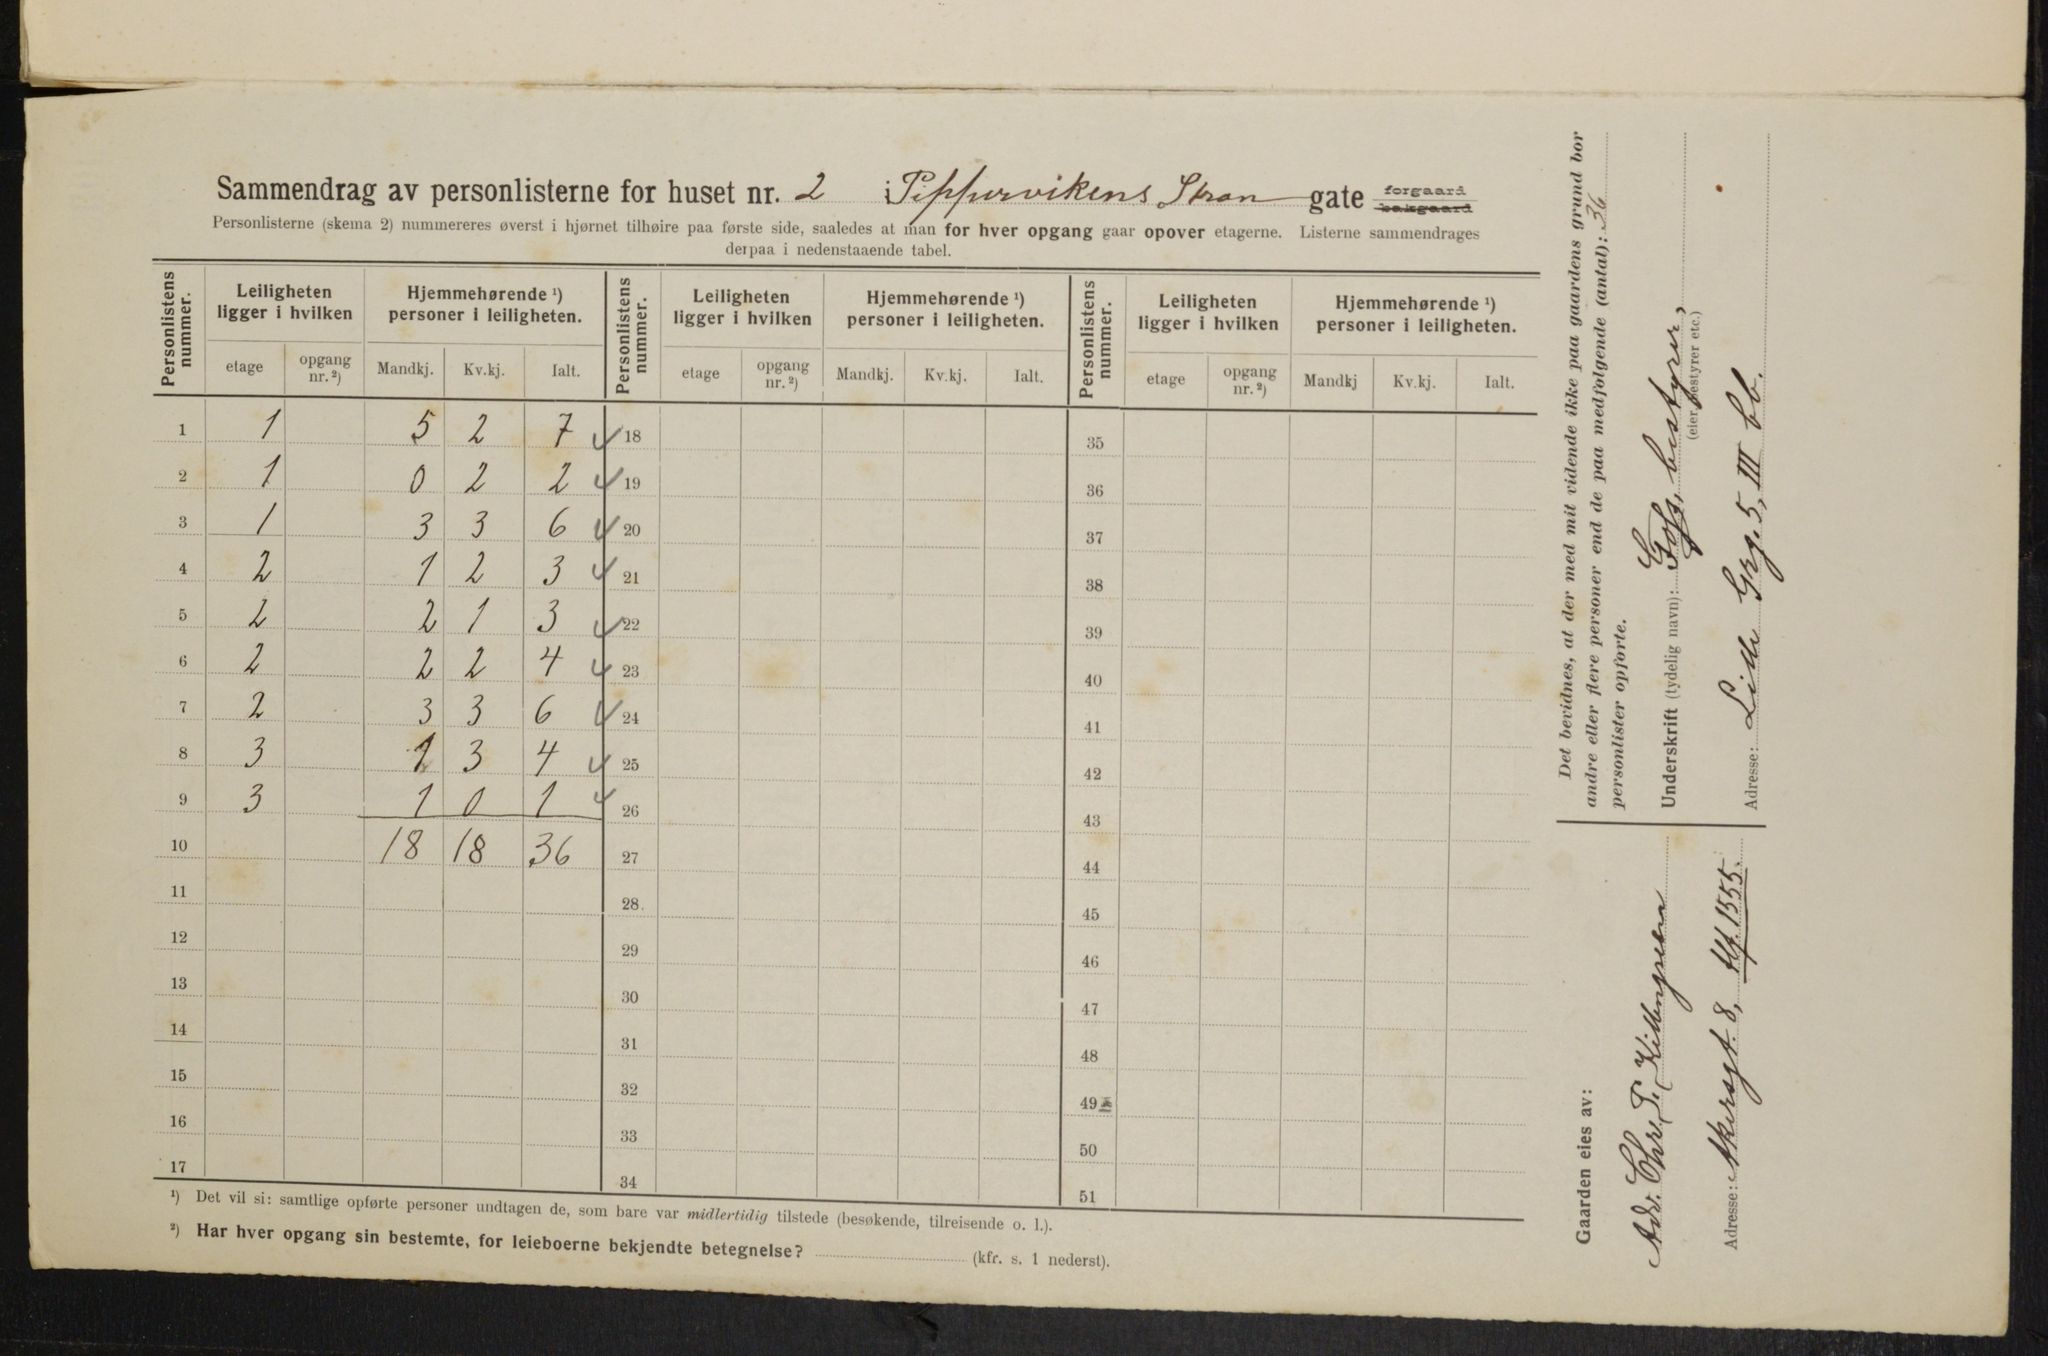 Sammendrag av personlisterne for huset nr. 2 i Pippervikens Stran gate forgaard bakgaard
Personlisterne (skema 2) nummereres øverst i hjørnet tilhøire paa første side, saaledes at man for hver opgang gaar opover etagerne. Listerne sammendrages
derpaa i nedenstaaende tabel.
Personlistens nummer. Leiligheten ligger i hvilken Hjemmehørende ¹) personer i leiligheten. Personlistens nummer. Leiligheten ligger i hvilken Hjemmehørende ¹) personer i leiligheten. Personlistens nummer. Leiligheten ligger i hvilken Hjemmehørende ¹) personer i leiligheten.
etage opgang nr. ²) Mandkj. Kv.kj. Ialt. etage opgang nr. ²) Mandkj. Kv.kj. Ialt. etage opgang nr. ²) Mandkj Kv.kj. Ialt.
1 1 5 2 7 ✓ 18 35
2 1 0 2 2 ✓ 19 36
3 1 3 3 6 ✓ 20 37
4 2 1 2 3 ✓ 21 38
5 2 2 1 3 ✓ 22 39
6 2 2 2 4 ✓ 23 40
7 2 3 3 6 ✓ 24 41
8 3 1 3 4 ✓ 25 42
9 3 1 0 1 ✓ 26 43
10 18 18 36 27 44
11 28. 45
12 29 46
13 30 47
14 31 48
15 32 49
16 33 50
17 34 51
¹) Det vil si: samtlige opførte personer undtagen de, som bare var midlertidig tilstede (besøkende, tilreisende o. l.).
²) Har hver opgang sin bestemte, for leieboerne bekjendte betegnelse? (kfr. s. 1 nederst).
Det bevidnes, at der med mit vidende ikke paa gaardens grund bor
andre eller flere personer end de paa medfølgende (antal): 36
personlister opførte.
Underskrift (tydelig navn): bestyrer,
(eier, bestyrer etc.)
Adresse: Lille Grg. 5, III bb.
Gaarden eies av:
Adv. Chr. P. Killengreen
Adresse: Akersgt. 8, tlf. 1555.